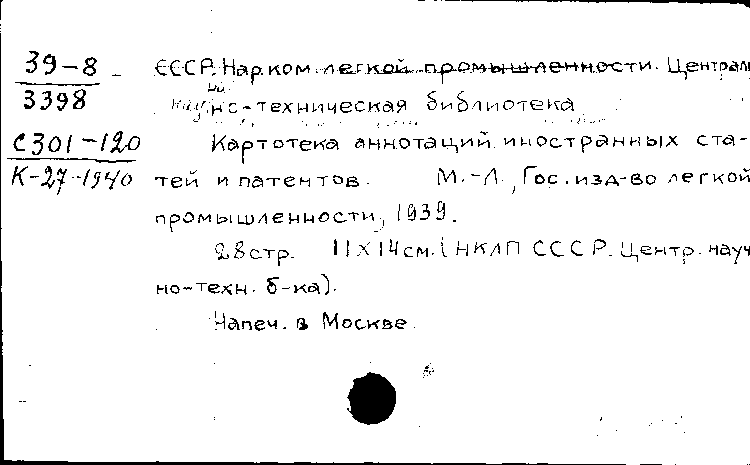 39-8
3398
С301-120
К-27-1940
СССР. Нар.ком. легкой промышленности. Централь
ная
научно-техническая библиотека
Картотека аннотаций иностранных ста-
тей и патентов. М.-Л., Гос. изд-во легкой
промышленности, 1939.
28 стр. 11х14 см. (НКЛП СССР. Центр. науч
но-техн. б-ка).
Напеч. в Москве.